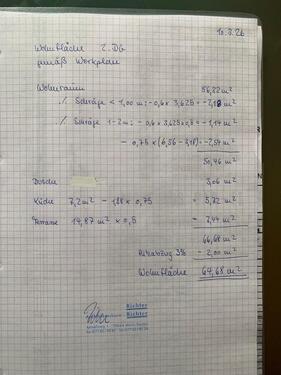 10.3.26
Wohnfläche 2. DG
gemäß Werkplan
Wohnraum 56,82 m²
./. Schräge < 1,00 m: - 0,6 x 3,625 = - 2,18 m²
./. Schräge 1-2 m: - 0,6 x 3,625 x 0,5 = - 1,14 m²
- 0,75 x (6,56 - 3,18) = - 2,54 m²
50,46 m²
Dusche 3,06 m²
Küche 7,2 m² - 1,88 x 0,75 = 5,72 m²
Terrasse 14,87 m² x 0,5 = 7,44 m²
66,68 m²
Putzabzug 3% - 2,00 m²
Wohnfläche 64,68 m²
Richter
Richter